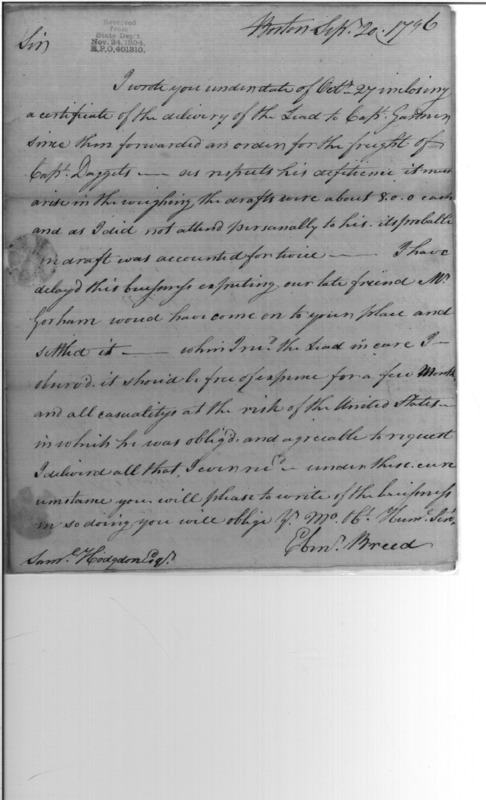 Boston Sepr. 20. 1796
Received
from
State Dep't
Nov. 24, 1894.
R.P.O, 401310.
Sir
I wrote you under date of Octr. 27 inclosing
a certificate of the delivery of the Lead to Capt. Gardner
since then forwarded an order for the freight of
Capt. Daggets — as respects his deficience it must
arise in the weighing the drafts were about 8.0.0 each
and as I did not attend personally to his. its probable
one draft was accounted for twice — I have
delayd this buisness expecting our late friend Mr.
Gorham woud have come on to your place and
settled it — when I recd. the Lead in care I
obsrvd. it should be free of expense for a few Months
and all casualitys at the risk of the United States —
in which he was obligd. and agreeable to request
I deliverd all that I ever recd — under these circ
umstance you will please to write of the buisness
in so doing you will oblige Yr. Mo. Obt. Humel. Servt.
Ebenr. Breed
Saml. Hodgdon Esqr.